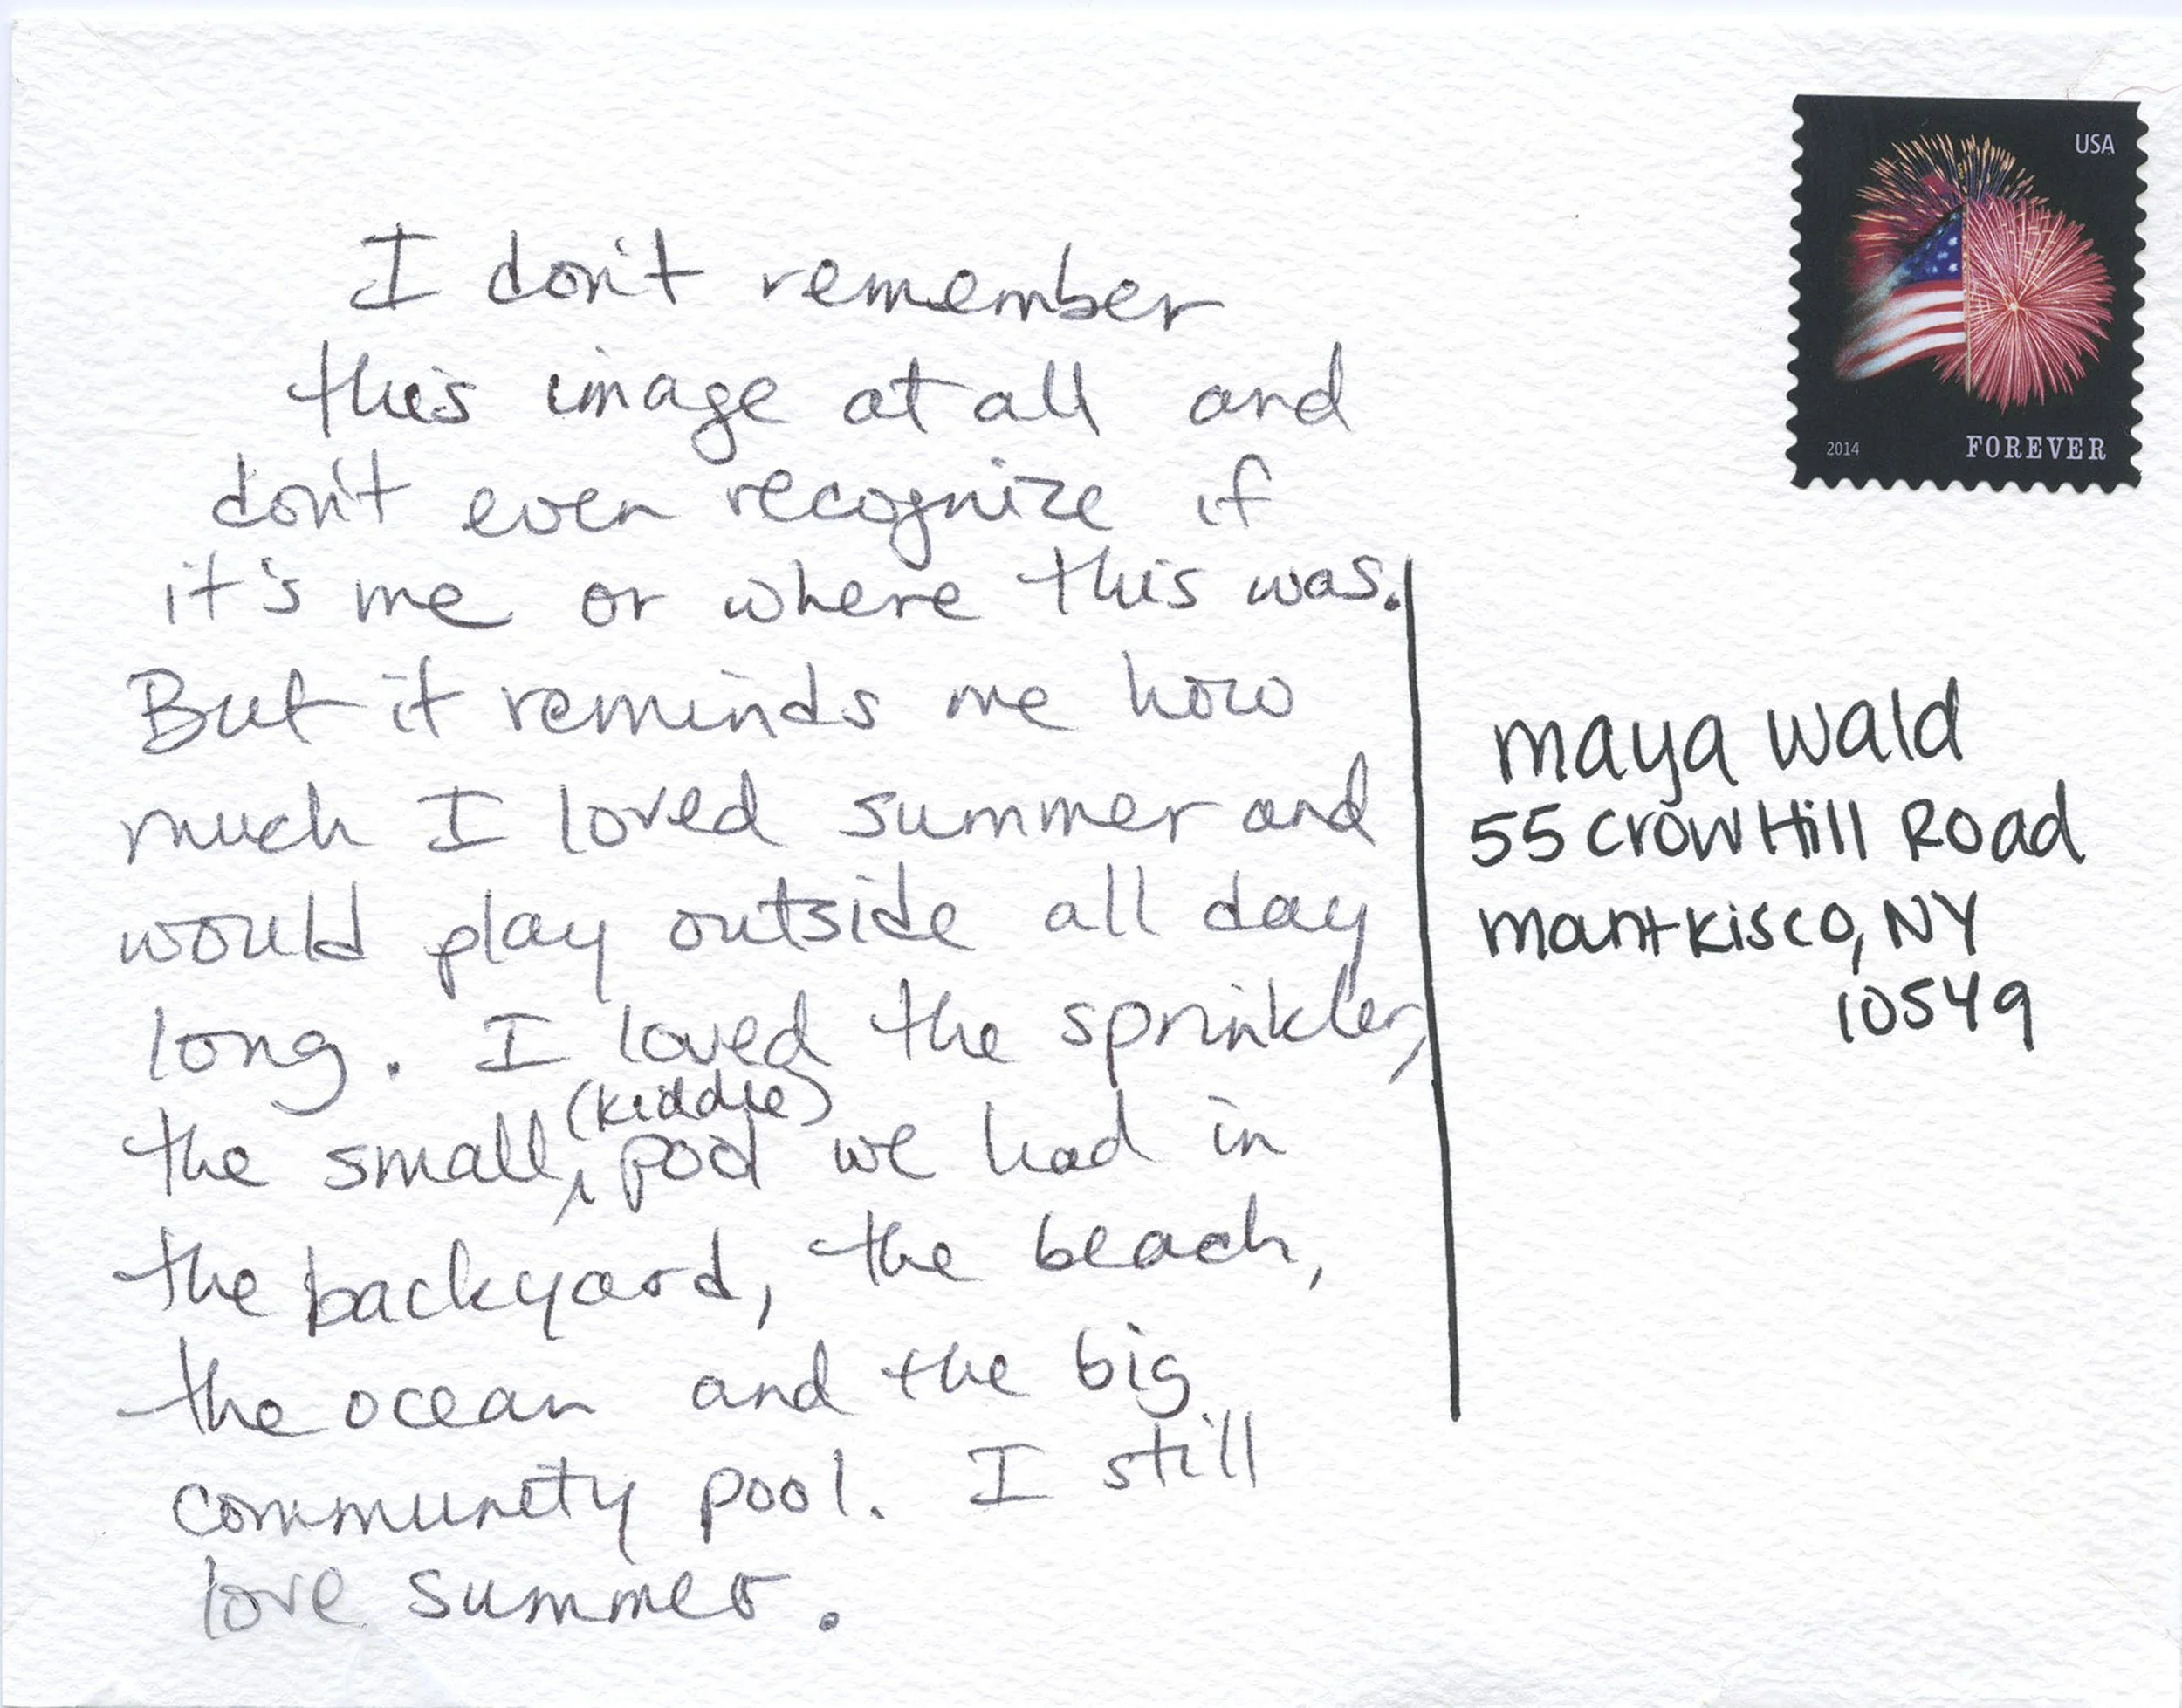 I don't remember
this image at all and
don't even recognize if
it's me or where this was.
But it reminds me how
much I loved summer and
would play outside all day
long. I loved the sprinkler,
the small (kiddie) pool we had in
the backyard, the beach,
the ocean and the big
community pool. I still
love summer.
USA
2014 FOREVER
maya wald
55 crow Hill Road
mantkisco, NY
10549